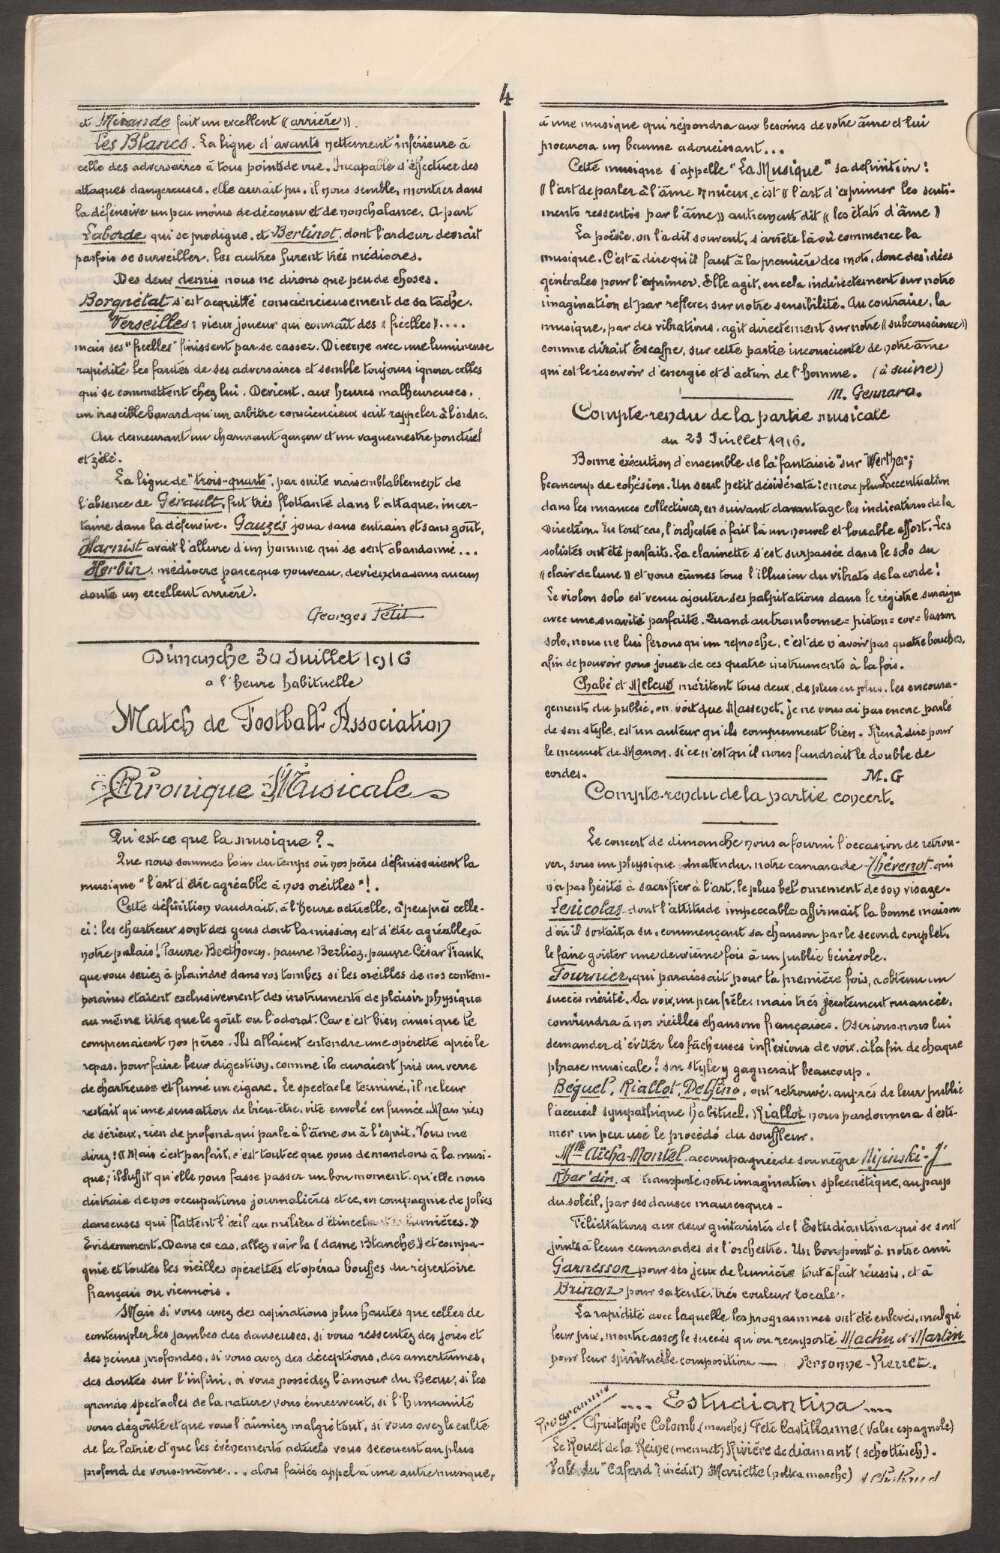 4
et Mirande fait un excellent "arrière".
Les Blancs. La ligne d'avants nettement inférieure à
celle des adversaires à tous points de vue. Incapable d'effectuer des
attaques dangereuses, elle aurait pu, il nous semble, montrer dans
la défensive un peu moins de décousu et de nonchalance. A part
Laborde, qui se prodigue, et Bertinot, dont l'ardeur devrait
parfois se surveiller, les autres furent très médiocres.
Des deux demis nous ne dirons que peu de choses.
Borgnétat s'est acquitté consciencieusement de sa tâche.
Verseilles: vieux joueur qui connaît des "ficelles"....
mais ses "ficelles" finissent par se casser. Discerne avec une lumineuse
rapidité les fautes de ses adversaires et semble toujours ignorer celles
qui se commettent chez lui. Devient, aux heures malheureuses,
un irascible bavard qu'un arbitre consciencieux sait rappeler à l'ordre.
Au demeurant un charmant garçon et un vaguemestre ponctuel
et zélé.
La ligne de "trois-quarts", par suite vraisemblablement de
l'absence de Gérault, fut très flottante dans l'attaque, incer-
taine dans la défensive. Gauzés joua sans entrain et sans goût,
Harnist avait l'allure d'un homme qui se sent abandonné...
Herbin, médiocre parceque nouveau, deviendra sans aucun
doute un excellent arrière.
Georges Petit
Dimanche 30 Juillet 1916
à l'heure habituelle
Match de Football Association
Chronique Musicale
Qu'est-ce que la musique?_
Que nous sommes loin du temps où nos pères définissaient la
musique "l'art d'être agréable à nos oreilles"!.
Cette définition vaudrait, à l'heure actuelle, à peu près celle-
ci: les chartreux sont des gens dont la mission est d'être agréables à
notre palais! Pauvre Beethoven, pauvre Berlioz, pauvre César Frank,
que vous seriez à plaindre dans vos tombes si les oreilles de nos contem-
porains étaient exclusivement des instruments de plaisir physique
au même titre que le goût ou l'odorat. Car c'est bien ainsi que le
comprenaient nos pères. Ils allaient entendre une opérette après le
repas, pour faire leur digestion, comme ils auraient pris un verre
de chartreuse et fumé un cigare. Le spectacle terminé, il ne leur
restait qu'une sensation de bien-être, vite envolé en fumée. Mais rien
de sérieux, rien de profond qui parle à l'âme ou à l'esprit. Vous me
direz: "Mais c'est parfait, c'est tout ce que nous demandons à la musi-
que; il suffit qu'elle nous fasse passer un bon moment, qu'elle nous
distraie de nos occupations journalières et ce, en compagnie de jolies
danseuses qui flattent l'œil au milieu d'étincelantes lumières."
Evidemment. Dans ce cas, allez voir la (dame Blanche) et compa-
gnie et toutes les vieilles opérettes et opéras bouffes du répertoire
français ou viennois.
Mais si vous avez des aspirations plus hautes que celles de
contempler les jambes des danseuses, si vous ressentez des joies et
des peines profondes, si vous avez des déceptions, des amertumes,
des doutes sur l'infini, si vous possédez l'amour du Beau, si les
grands spectacles de la nature vous émeuvent, si l'humanité
vous dégoûte et que vous l'aimiez malgré tout, si vous avez le culte
de la Patrie et que les événements actuels vous secouent au plus
profond de vous-même... alors faites appel à une autre musique,
à une musique qui répondra aux besoins de votre âme et lui
procurera un baume adoucissant...
Cette musique s'appelle "La Musique" sa définition:
"l'art de parler à l'âme" mieux, c'est "l'art d'exprimer les senti-
ments ressentis par l'âme" autrement dit "les états d'âme"
La poésie, on l'a dit souvent, s'arrête là où commence la
musique. C'est à dire qu'il faut à la première des mots, donc des idées
générales pour l'exprimer. Elle agit, en cela indirectement sur notre
imagination et par reflexe sur notre sensibilité. Au contraire, la
musique, par des vibrations, agit directement sur notre "subconscience"
comme dirait Escaffre, sur cette partie inconsciente de notre âme
qui est le réservoir d'énergie et d'action de l'homme. (à suivre)
M. Gennaro.
Compte-rendu de la partie musicale
du 23 Juillet 1916.
Bonne éxécution d'ensemble de la "fantaisie" sur Werther;
beaucoup de cohésion. Un seul petit désidérata: encore plus d'accentuation
dans les nuances collectives, en suivant davantage les indications de la
Direction. En tout cas, l'orchestre a fait là un nouvel et louable effort. Les
solistes ont été parfaits. La clarinette s'est surpassée dans le solo du
"clair de lune" et nous eûmes tous l'illusion du vibrato de la corde!
Le violon solo est venu ajouter ses palpitations dans le régistre suraigu
avec une suavité parfaite. Quand au trombonne=piston=cor=basson
solo, nous ne lui ferons qu'un reproche, c'est de n'avoir pas quatre bouches,
afin de pouvoir nous jouer de ces quatre instruments à la fois.
Chabé et Meleus méritent tous deux, de plus en plus, les encoura-
gements du public, on voit que Massenet, je ne vous ai pas encore parlé
de son style, est un auteur qu'ils comprennent bien. Rien à dire pour
le menuet de Manon, si ce n'est qu'il nous faudrait le double de
cordes.
M.G
Compte-rendu de la partie concert.
Le concert de dimanche nous a fourni l'occasion de retrou-
ver, sous un physique inattendu, notre camarade Thévenot qui
n'a pas hésité à sacrifier à l'art, le plus bel ornement de son visage.
Lenicolas dont l'attitude impeccable affirmait la bonne maison
d'où il sortait, a su, commençant sa chanson par le second couplet,
le faire goûter une deuxième fois à un public bénévole.
Fournier, qui paraissait pour la première fois, a obtenu un
succès mérité. Sa voix, un peu frêle, mais très justement nuancée,
conviendra à nos vieilles chansons françaises. Oserions-nous lui
demander d'éviter les fâcheuses inflexions de voix à la fin de chaque
phrase musicale? son style y gagnerait beaucoup.
Béquel, Riallot, Delfino, ont retrouvé, auprès de leur public
l'accueil sympathique habituel. Riallot nous pardonnera d'esti-
mer un peu usé le procédé du souffleur.
Mlle Aïcha-Montel, accompagnée de son nègre Nijinski-J
Khar'din, a transporté notre imagination splénétique, au pays
du soleil, par ses danses mauresques.
Félicitations aux deux guitaristes de l'Estudiantina qui se sont
joints à leurs camarades de l'orchestre. Un bon point à notre ami
Garnesson pour ses jeux de lumière tout à fait réussis, et à
Brinon pour sa tente, très couleur locale.
La rapidité avec laquelle les programmes ont été enlevés, malgré
leur prix, montre assez le succès qu'on remporté Machu et Martin
pour leur spirituelle composition — Personne-Pierret.
.... Estudiantina ....
Programme
Christophe Colomb (marche) Fête Castillanne (Valse espagnole)
Le Rouet de la Reine (menuet) Rivière de diamant (schottisch).
Vals. du "Cafard" (inédit) Mariette (polka marche)